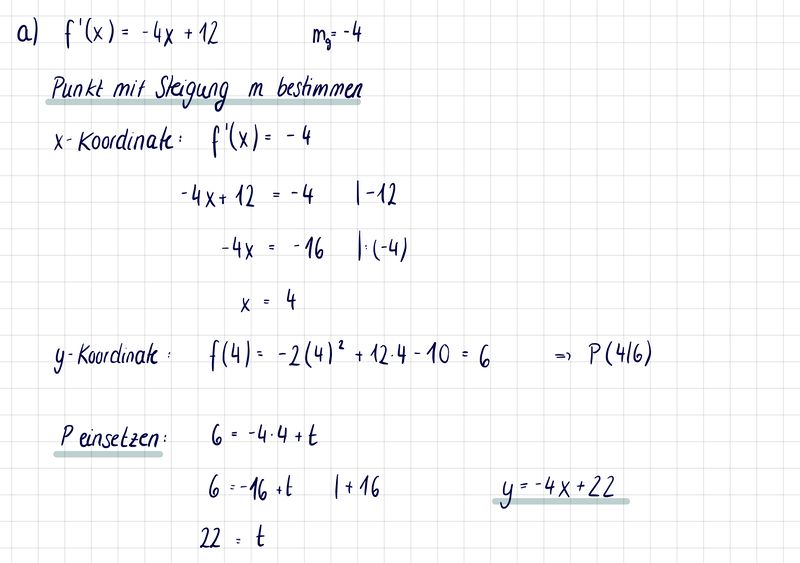 a) f'(x) = -4x + 12 m_g = -4
Punkt mit Steigung m bestimmen
x-Koordinate: f'(x) = -4
-4x + 12 = -4 | -12
-4x = -16 | :(-4)
x = 4
y-Koordinate: f(4) = -2(4)² + 12·4 - 10 = 6 => P(4|6)
P einsetzen: 6 = -4·4 + t
6 = -16 + t | + 16 y = -4x + 22
22 = t